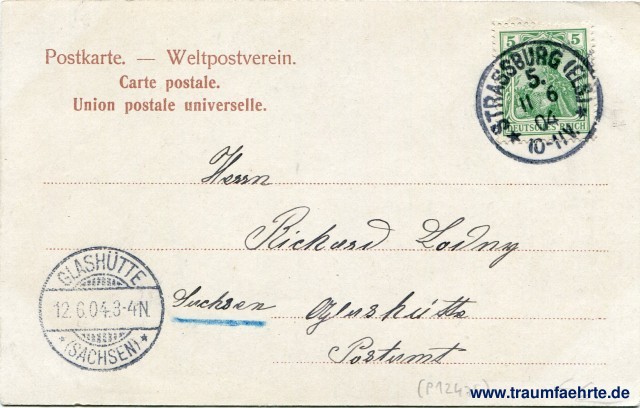 Postkarte. — Weltpostverein.
Carte postale.
Union postale universelle.
5 5
DEUTSCHES REICH
* STRASSBURG (ELS) *
5.
11 6
04
10-11V.
Herrn
Richard Lodny
Sachsen
Glashütte
Postamt
GLASHÜTTE
12.6.04.3-4N.
* (SACHSEN) *
www.traumfaehrte.de